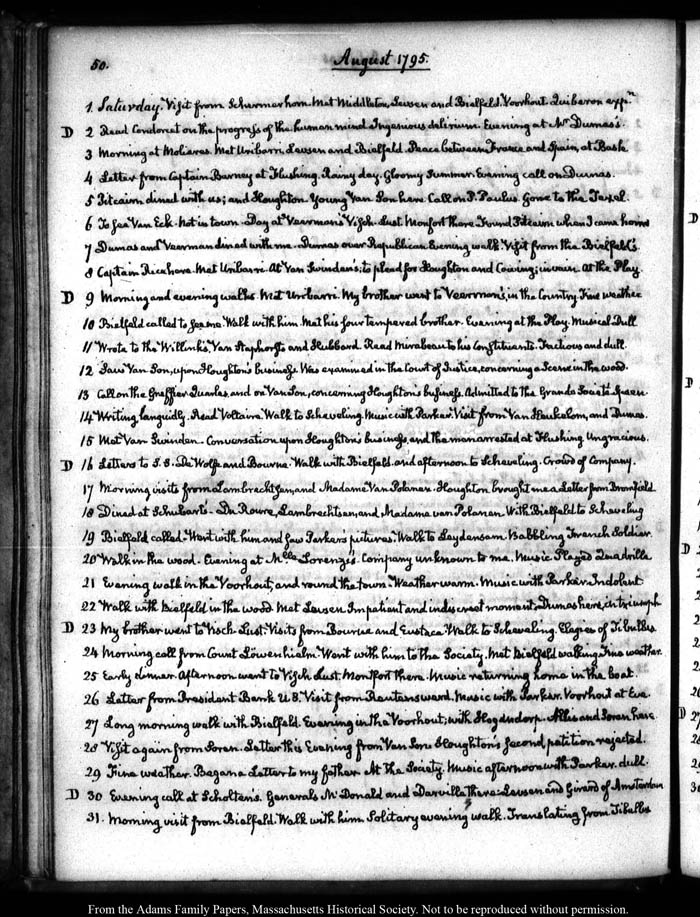 50.
August 1795.
1. Saturday. Visit from Schermerhorn. Met Middleton, Leusen and Bielfeld. Voorhout. Quiberon expn
D 2 Read Condorcet on the progress of the human mind. Ingenious delirium. Evening at Mr Dumas's.
3 Morning at Moliere's. Met Uribarri, Leusen and Bielfeld. Peace between France and Spain, at Basle
4 Letter from Captain Barney at Flushing. Rainy day. Gloomy Summer. Evening call on Dumas.
5 Pitcairn dined with us; and Houghton. Young Van Son here. Call on P. Paulus. Gone to the Texel.
6 To see Van Eck. Not in town. Day at Veerman's Visch-Lust. Monfort there. Found Pitcairn when I came home
7 Dumas and Veerman dined with me. Dumas over Republican. Evening walk. Visit from the Bielfeld's.
8 Captain Rice here. Met Uribarri. At Van Swinden's; to plead for Houghton and Cowing; in vain. At the Play.
D 9 Morning and evening walks. Met Uribarri. My brother went to Veerman's, in the Country. Fine weather
10 Bielfeld called to see me. Walk with him. Met his sour tempered brother. Evening at the Play. Musical. Dull
11 Wrote to the Willinks, Van Staphorsts and Hubbard. Read Mirabeau to his Constituents. Factious and dull.
12 Saw Van Son, upon Houghton's business. Was examined in the Court of Justice, concerning a Scene in the wood.
13 Call on the Greffier Quarles, and on Van Son, concerning Houghton's business. Admitted to the Grande Société.
14 Writing languidly. Read Voltaire. Walk to Scheveling. Music with Parker. Visit from Van Heukelom, and Dumas.
15 Met Van Swinden. Conversation upon Houghton's business, and the man arrested at Flushing. Ungracious.
D 16 Letters to S. S. De Wolfe and Bourne. Walk with Bielfeld. and afternoon to Scheveling. Crowd of Company.
17 Morning visits from Lambrechtsen, and Madame Van Polanen. Houghton brought me a Letter from Bromfield.
18 Dined at Schubart's. De Roure, Lambrechtsen, and Madame van Polanen. With Bielfeld to Scheveling
19 Bielfeld called. Went with him and saw Parker's pictures. Walk to Leydensam. Babbling French Soldier.
20 Walk in the wood. Evening at Mlle Lorenzi's. Company unknown to me. Music. Played Quadrille
21 Evening walk in the Voorhout, and round the town. Weather warm. Music with Parker. Indolent
22 Walk with Bielfeld in the wood. Met Leusen. Impatient and indiscreet moment. Dumas here, in triumph
D 23 My brother went to Visch-Lust. Visits from Bourne and Eustace. Walk to Scheveling. Elegies of Tibullus
24 Morning call from Count Löwenhielm. Went with him to the Society. Met Bielfeld walking. Fine weather.
25 Early dinner. Afternoon went to Visch Lust. Montfort there. Music returning home in the boat.
26 Letter from President Bank U.S. Visit from Reutensward. Music with Parker. Voorhout at Eve.
27 Long morning walk with Bielfeld. Evening in the Voorhout; with Hogendorp. Allis and Soren here.
28 Visit again from Soren. Letter this Evening from Van Son. Houghton's second petition rejected.
29 Fine weather. Began a Letter to my father. At the Society. Music afternoon with Parker. dull.
D 30 Evening call at Scholten's. Generals McDonald and Darville there. Leusen and Girard of Amsterdam
31. Morning visit from Bielfeld. Walk with him. Solitary evening walk. Translating from Tibullus
D
D
D
D
From the Adams Family Papers, Massachusetts Historical Society. Not to be reproduced without permission.